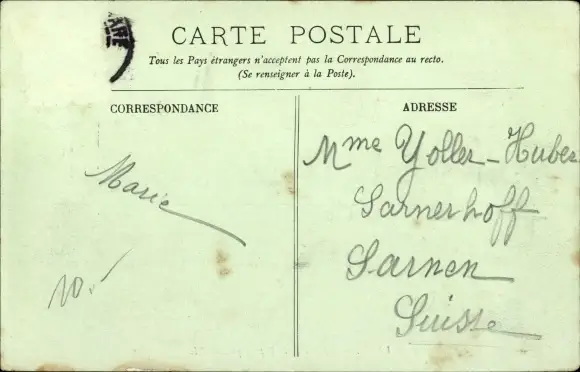 CARTE POSTALE
Tous les Pays étrangers n'acceptent pas la Correspondance au recto.
(Se renseigner à la Poste).
CORRESPONDANCE
ADRESSE
Marie
10.-
Mme Yoller-Huber
Sarnerhoff
Sarnen
Suisse